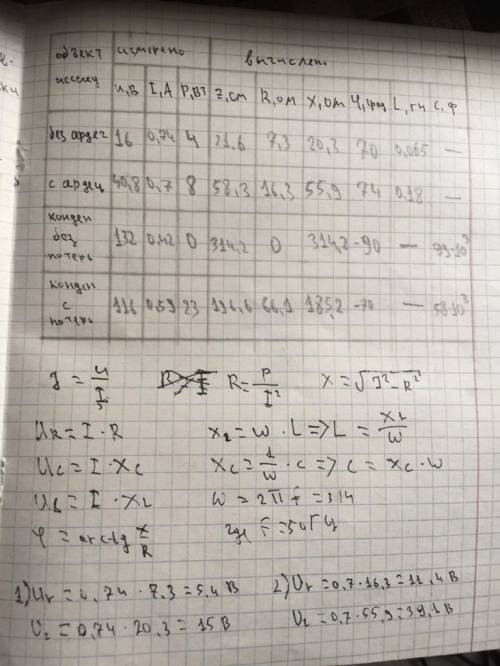 объект измерено вычислено
исслед U,В I,А P,ВТ Z,ом R,ом X,ом φ,град L,гн C,ф
без сердеч 16 0,74 4 21,6 7,3 20,3 70 0,065 —
с сердеч 40,8 0,7 8 58,3 16,3 55,9 74 0,18 —
конден без потерь 132 0,42 0 314,2 0 314,2 -90 — 99·10³
конден с потерь 116 0,59 23 196,6 66,1 185,2 -70 — 58·10³
R = P/I² X = √Z² - R²
UR = I · R XL = W · L => L = XL/W
UC = I · XC XC = 1/W · C => C = XC · W
UL = I · XL W = 2π F = 314
φ = arctg X/R где F = 50 Гц
1) Ur = 0,74 · 7,3 = 5,4 В 2) Ur = 0,7 · 16,3 = 11,4 В
UL = 0,74 · 20,3 = 15 В UL = 0,7 · 55,9 = 39,1 В